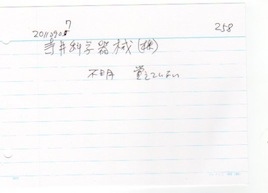 7 258
20110905
寺井科学器械(株)
不明 覚えていない